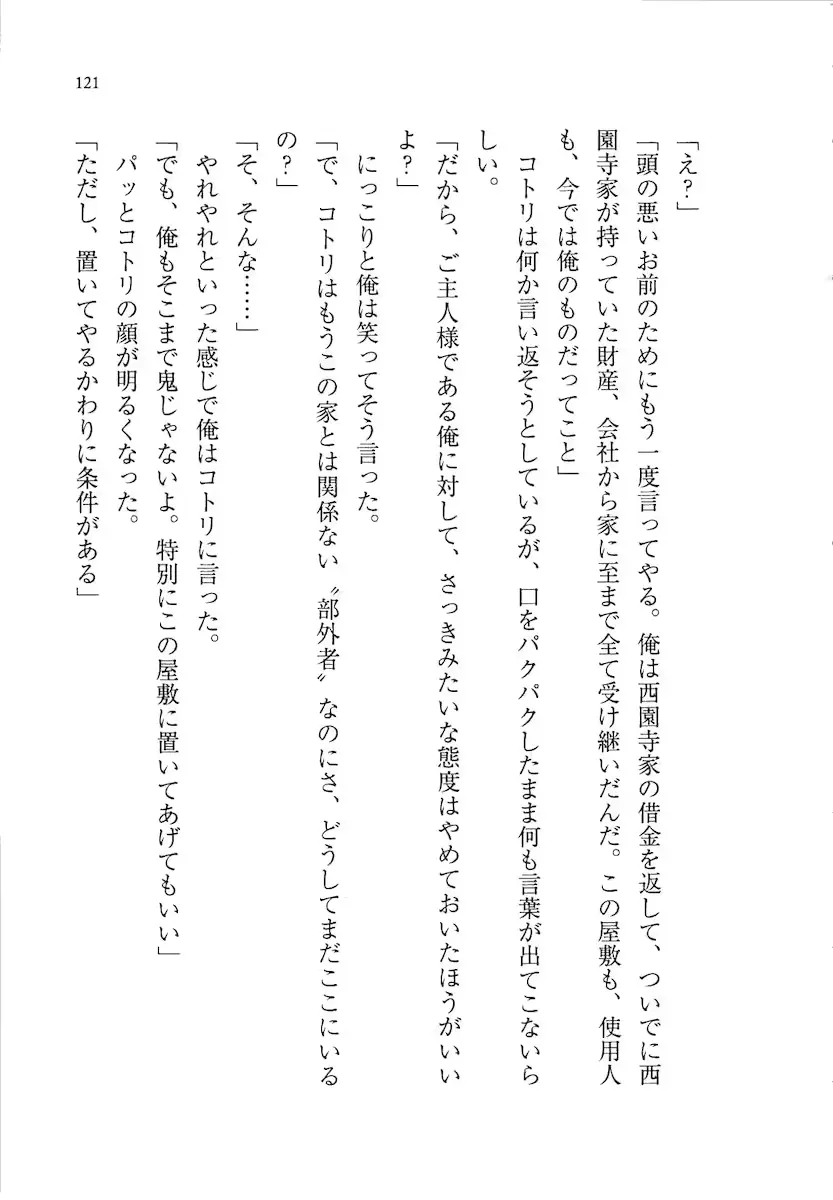 121
「え？」
「頭の悪いお前のためにもう一度言ってやる。俺は西園寺家の借金を返して、ついでに西
園寺家が持っていた財産、会社から家に至まで全て受け継いだんだ。この屋敷も、使用人
も、今では俺のものだってこと」
　コトリは何か言い返そうとしているが、口をパクパクしたまま何も言葉が出てこないら
しい。
「だから、ご主人様である俺に対して、さっきみたいな態度はやめておいたほうがいい
よ？」
　にっこりと俺は笑ってそう言った。
「で、コトリはもうこの家とは関係ない〝部外者〟なのにさ、どうしてまだここにいる
の？」
「そ、そんな……」
　やれやれといった感じで俺はコトリに言った。
「でも、俺もそこまで鬼じゃないよ。特別にこの屋敷に置いてあげてもいい」
　パッとコトリの顔が明るくなった。
「ただし、置いてやるかわりに条件がある」